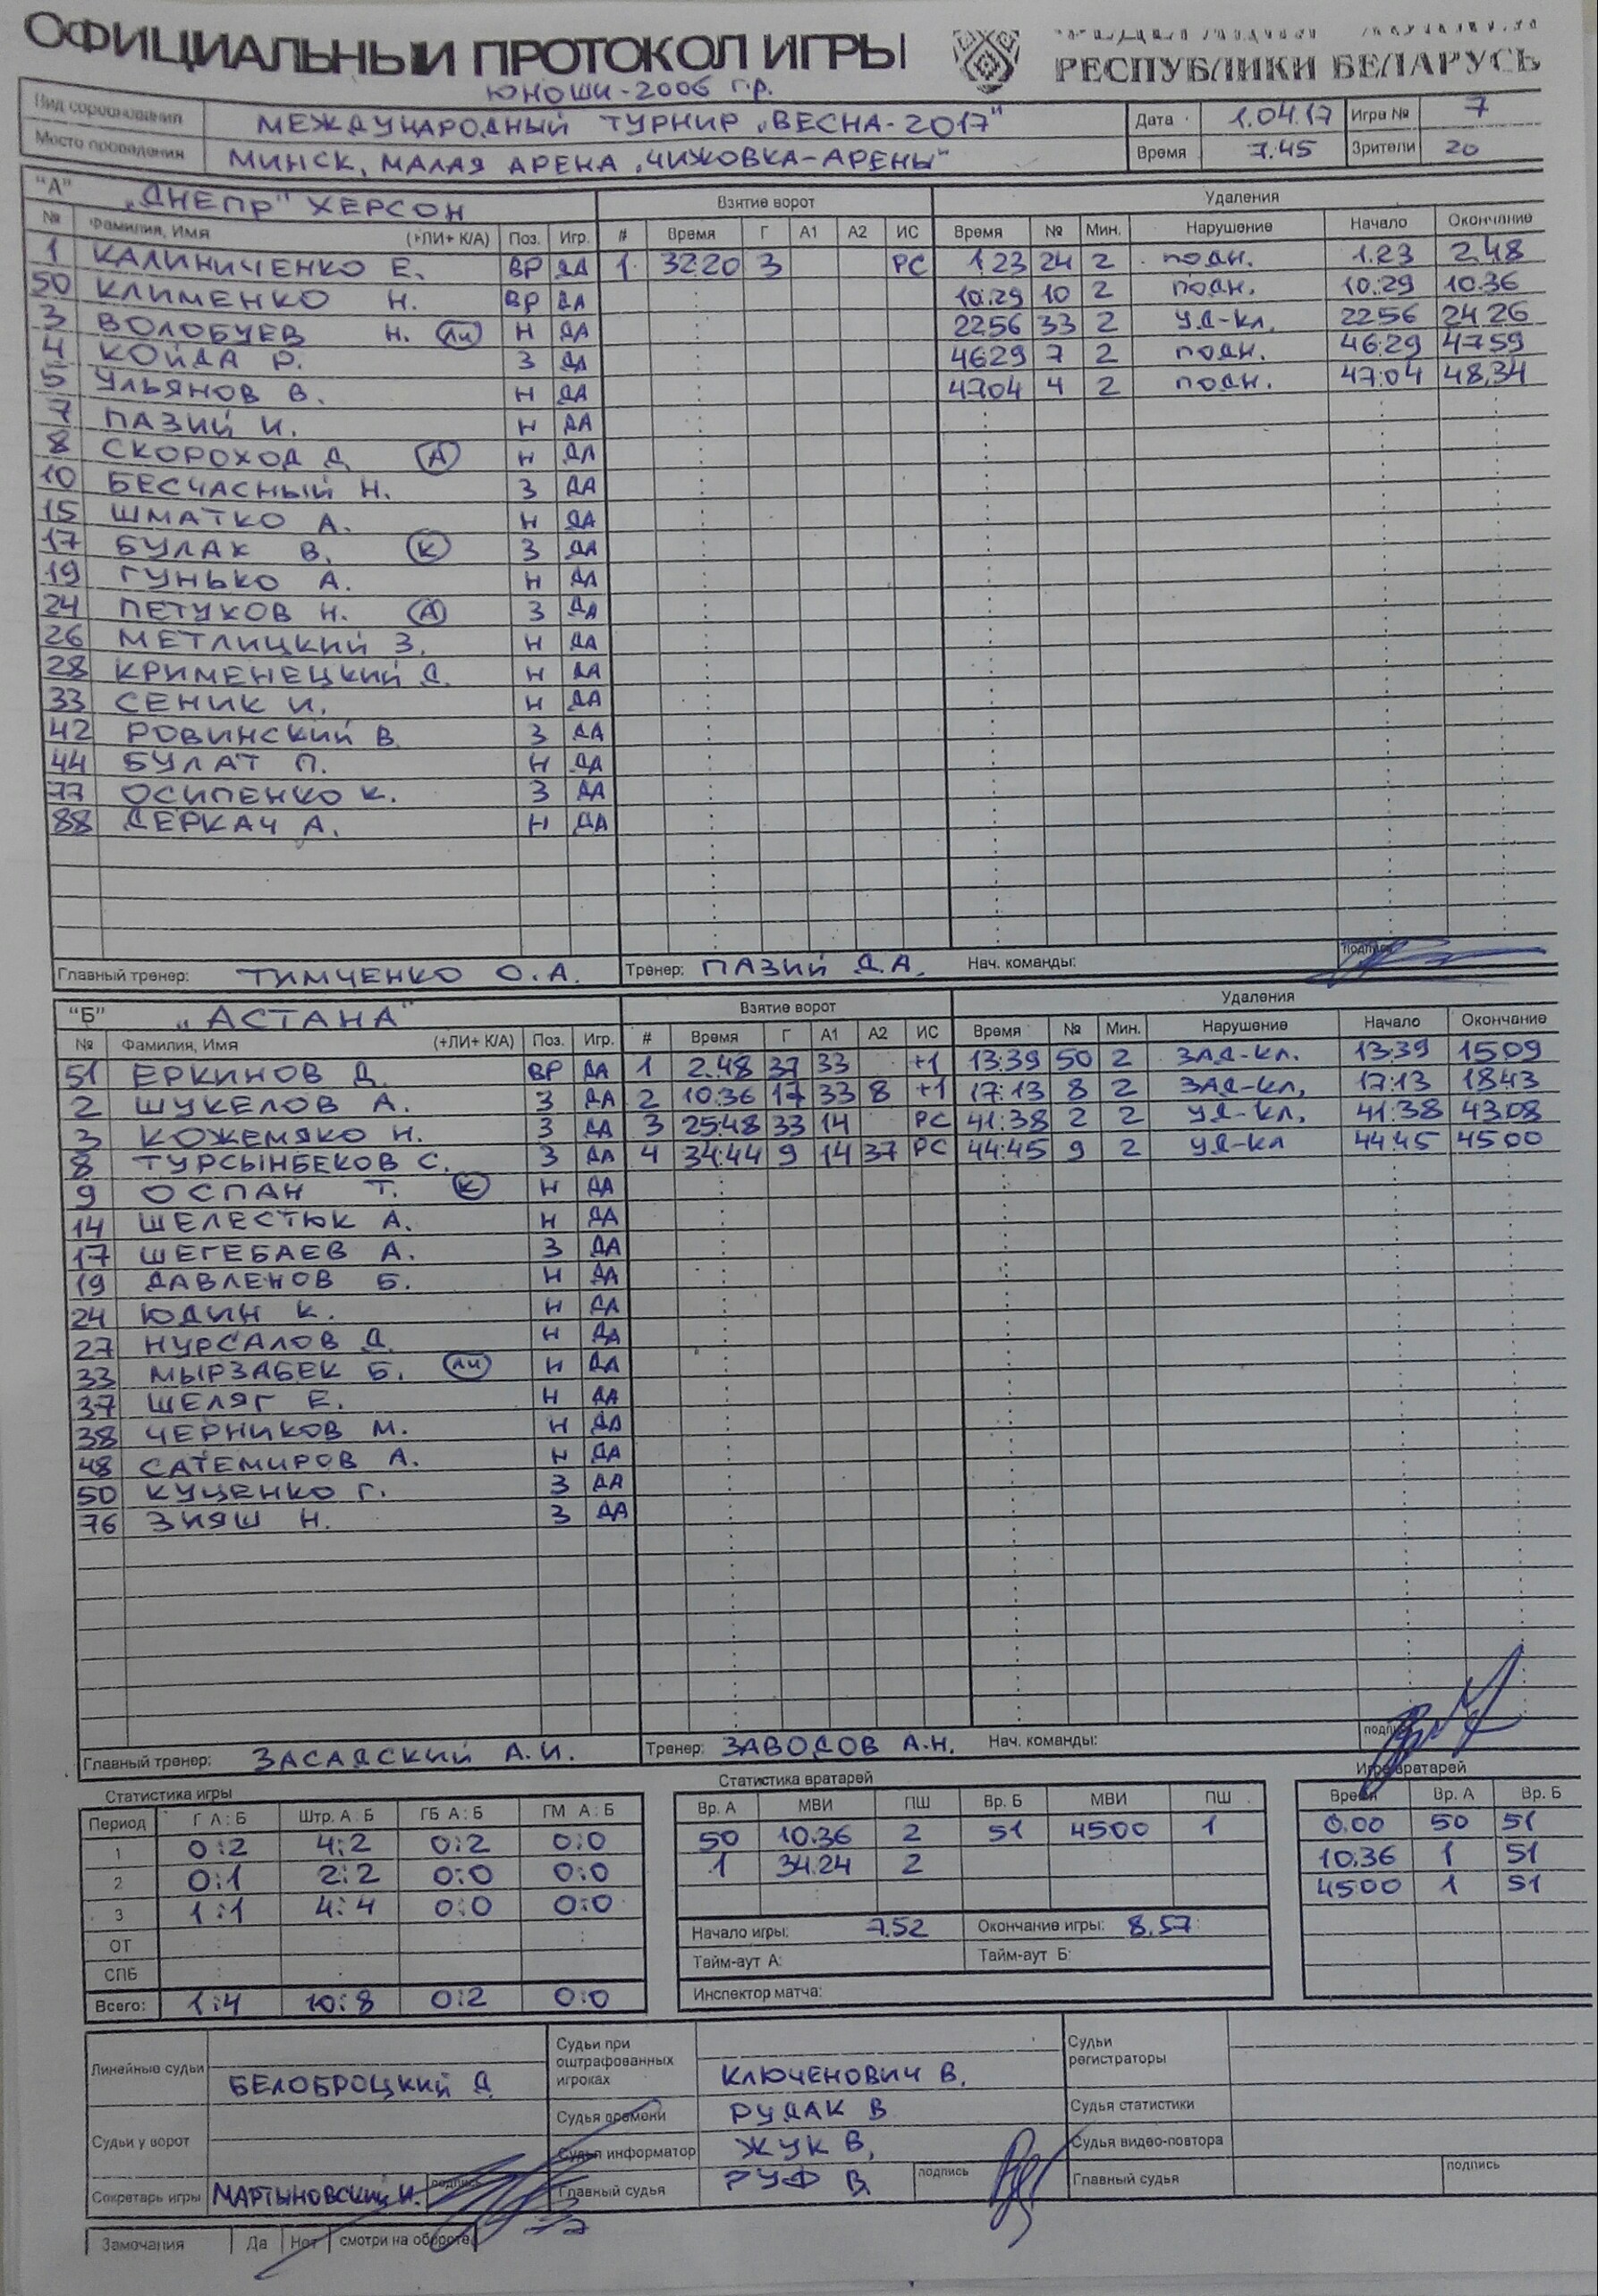 ОФИЦИАЛЬНЫЙ ПРОТОКОЛ ИГРЫ
РЕСПУБЛИКИ БЕЛАРУСЬ
ЮНОШИ-2006 г.р.
Вид соревнования МЕЖДУНАРОДНЫЙ ТУРНИР „ВЕСНА-2017" Дата 1.04.17 Игра № 7
Место проведения МИНСК, МАЛАЯ АРЕНА „ЧИЖОВКА-АРЕНЫ" Время 7.45 Зрители 20
"А" „ДНЕПР" ХЕРСОН Взятие ворот Удаления
№ Фамилия, Имя (+ЛИ+ К/А) Поз. Игр. # Время Г А1 А2 ИС Время № Мин. Нарушение Начало Окончание
1 КАЛИНИЧЕНКО Е. ВР ДА 1 32:20 3 РС 1:23 24 2 подн. 1:23 2:48
50 КЛИМЕНКО Н. ВР ДА 10:29 10 2 подн. 10:29 10:36
3 ВОЛОБУЕВ Н. ЛИ Н ДА 22:56 33 2 УД-КЛ. 22:56 24:26
4 КОЙДА Р. З ДА 46:29 7 2 подн. 46:29 47:59
5 УЛЬЯНОВ В. Н ДА 47:04 4 2 подн. 47:04 48:34
7 ПАЗИЙ И. Н ДА
8 СКОРОХОД Д. А Н ДА
10 БЕСЧАСНЫЙ Н. З ДА
15 ШМАТКО А. Н ДА
17 БУЛАХ В. К З ДА
19 ГУНЬКО А. Н ДА
24 ПЕТУХОВ Н. А З ДА
26 МЕТЛИЦКИЙ З. Н ДА
28 КРИМЕНЕЦКИЙ Д. Н ДА
33 СЕНИК И. Н ДА
42 РОВИНСКИЙ В З ДА
44 БУЛАТ П. Н ДА
77 ОСИПЕНКО К. З ДА
88 ДЕРКАЧ А. Н ДА
Главный тренер: ТИМЧЕНКО О.А. Тренер: ПАЗИЙ Д.А. Нач. команды: подпись
"Б" „АСТАНА" Взятие ворот Удаления
№ Фамилия, Имя (+ЛИ+ К/А) Поз. Игр. # Время Г А1 А2 ИС Время № Мин. Нарушение Начало Окончание
51 ЕРКИНОВ Д. ВР ДА 1 2:48 37 33 +1 13:39 50 2 ЗАД-КЛ. 13:39 15:09
2 ШУКЕЛОВ А. З ДА 2 10:36 17 33 8 +1 17:13 8 2 ЗАД-КЛ. 17:13 18:43
3 КОЖЕМЯКО Н. З ДА 3 25:48 33 14 РС 41:38 2 2 УД-КЛ. 41:38 43:08
8 ТУРСЫНБЕКОВ С. З ДА 4 34:44 9 14 37 РС 44:45 9 2 УД-КЛ 44:45 45:00
9 ОСПАН Т. К Н ДА
14 ШЕЛЕСТЮК А. Н ДА
17 ШЕГЕБАЕВ А. З ДА
19 ДАВЛЕНОВ Б. Н ДА
24 ЮДИН К. Н ДА
27 НУРСАЛОВ Д. Н ДА
33 МЫРЗАБЕК Б. ЛИ Н ДА
37 ШЕЛЯГ Е. Н ДА
38 ЧЕРНИКОВ М. Н ДА
48 САТЕМИРОВ А. Н ДА
50 КУЦЕНКО Г. З ДА
76 ЗИЯШ Н. З ДА
Главный тренер: ЗАСАДСКИЙ А.И. Тренер: ЗАВОДОВ А.Н. Нач. команды: подпись
Статистика игры Статистика вратарей Игра вратарей
Период Г А : Б Штр. А : Б ГБ А : Б ГМ А : Б Вр. А МВИ ПШ Вр. Б МВИ ПШ Время Вр. А Вр. Б
1 0:2 4:2 0:2 0:0 50 10:36 2 51 45:00 1 0:00 50 51
2 0:1 2:2 0:0 0:0 1 34:24 2 10:36 1 51
3 1:1 4:4 0:0 0:0 45:00 1 51
ОТ Начало игры: 7.52 Окончание игры: 8.57
СПБ Тайм-аут А: Тайм-аут Б:
Всего: 1:4 10:8 0:2 0:0 Инспектор матча:
Линейные судьи БЕЛОБРОЦКИЙ Д. Судьи при оштрафованных игроках КЛЮЧЕНОВИЧ В. Судьи регистраторы
Судья времени РУДАК В Судья статистики
Судьи у ворот Судья информатор ЖУК В. Судья видео-повтора
Секретарь игры МАРТЫНОВСКИЙ И. подпись Главный судья РУФ В. подпись Главный судья подпись
Замечания Да Нет смотри на обороте